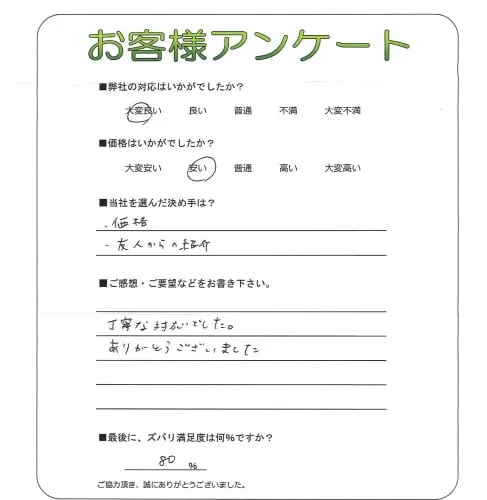 お客様アンケート
■弊社の対応はいかがでしたか？
大変良い 良い 普通 不満 大変不満
■価格はいかがでしたか？
大変安い 安い 普通 高い 大変高い
■当社を選んだ決め手は？
・価格
・友人からの紹介
■ご感想・ご要望などをお書き下さい。
丁寧な対応でした。
ありがとうございました
■最後に、ズバリ満足度は何％ですか？
80 ％
ご協力頂き、誠にありがとうございました。